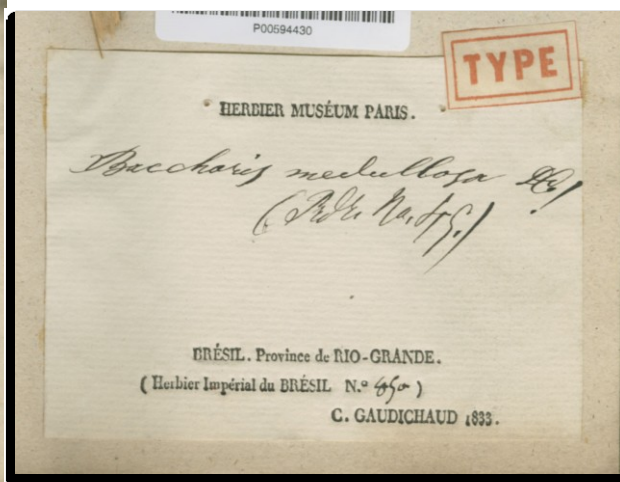 P00594430
TYPE
HERBIER MUSÉUM PARIS.
Baccharis medullosa DC!
BRÉSIL. Province de RIO-GRANDE.
(Herbier Impérial du BRÉSIL N.º 850)
C. GAUDICHAUD 1833.